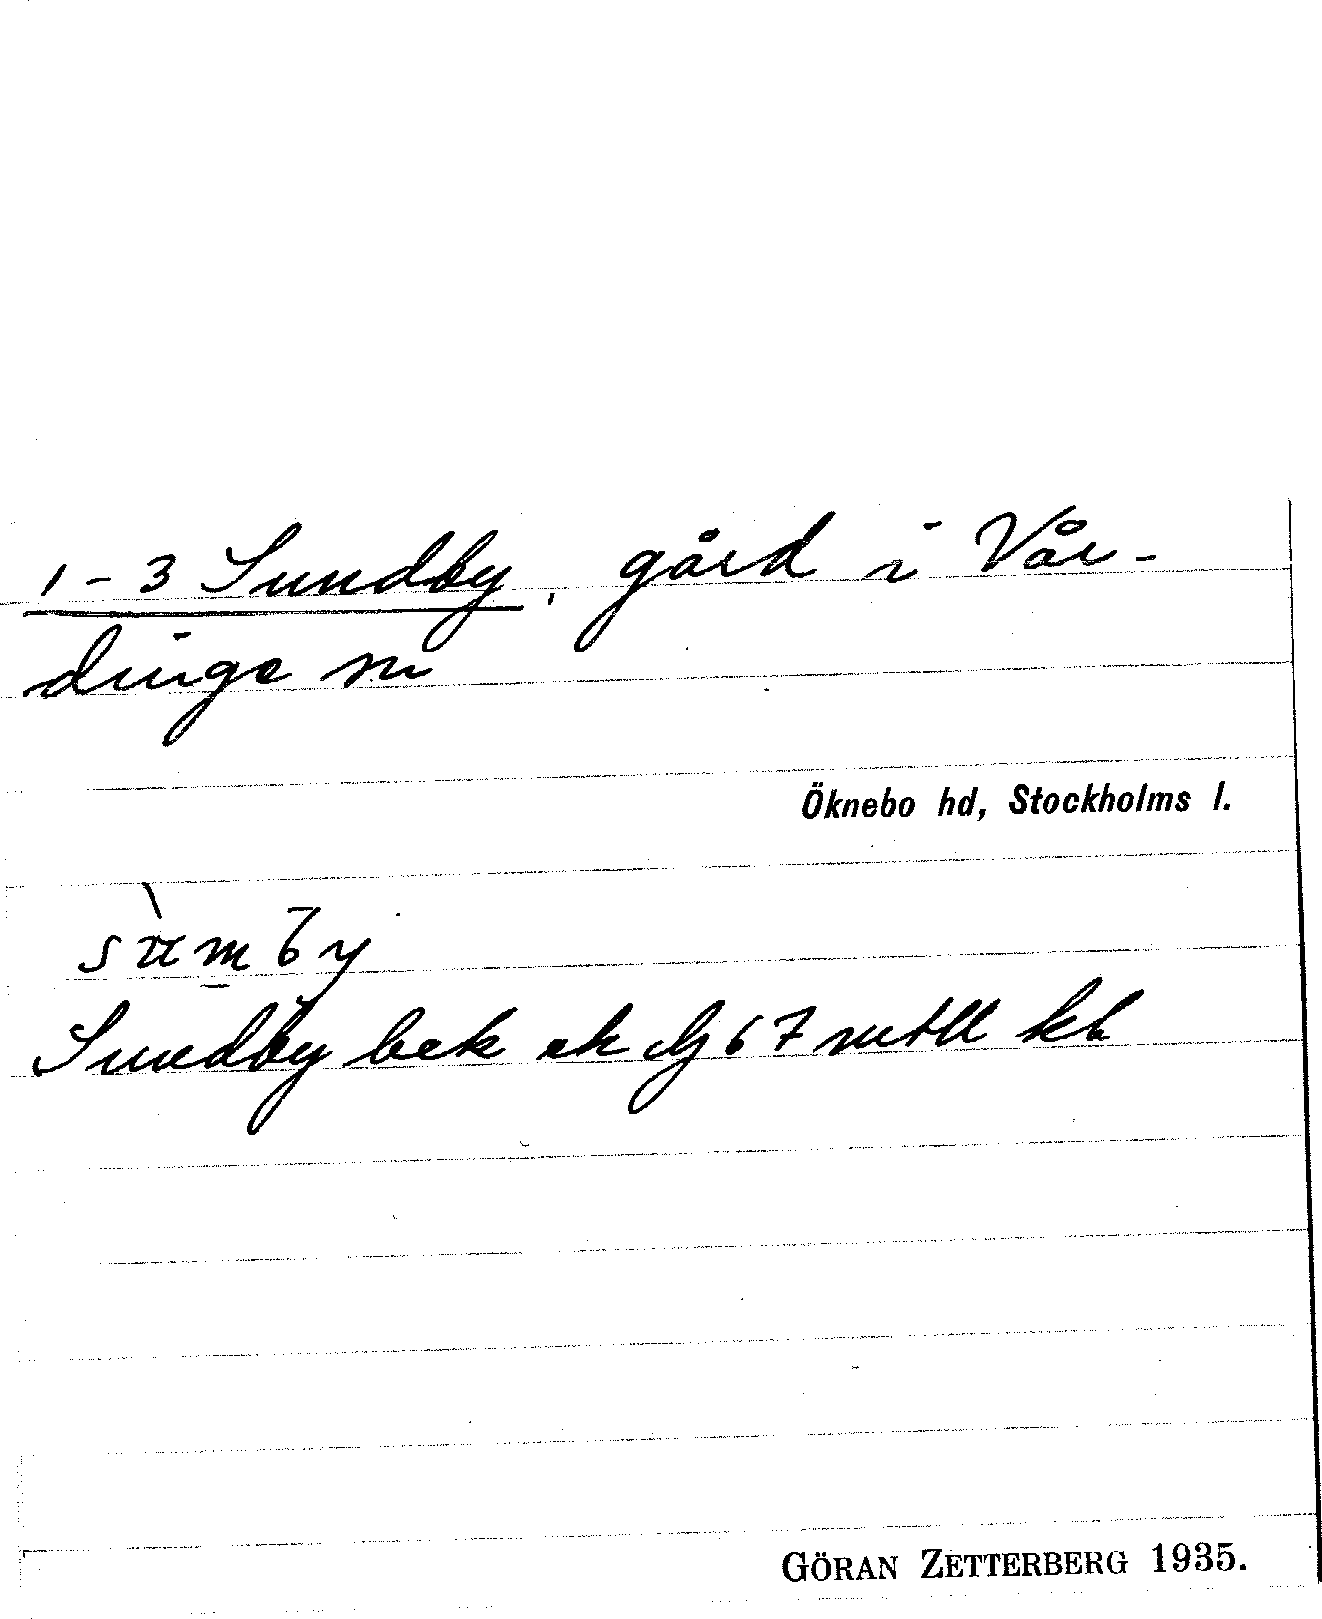 1-3 Sundby, gård i Vår-
dinge sn
Öknebo hd, Stockholms l.
sùmby
Sundby bek ek bl 67 kb
GÖRAN ZETTERBERG 1935.